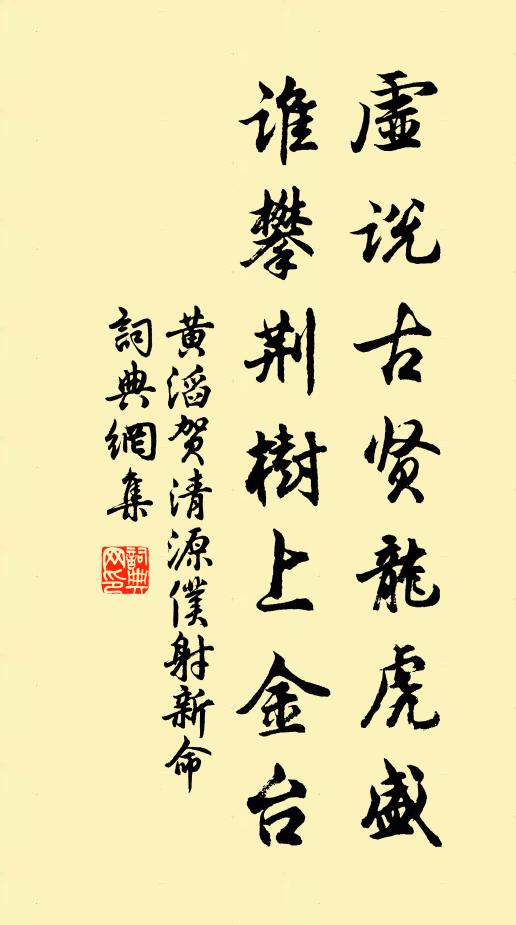 虛说古贤龍虎盛
谁攀荆樹上金台
黄滔贺清源僕射新命
詞典網集
詞典网印